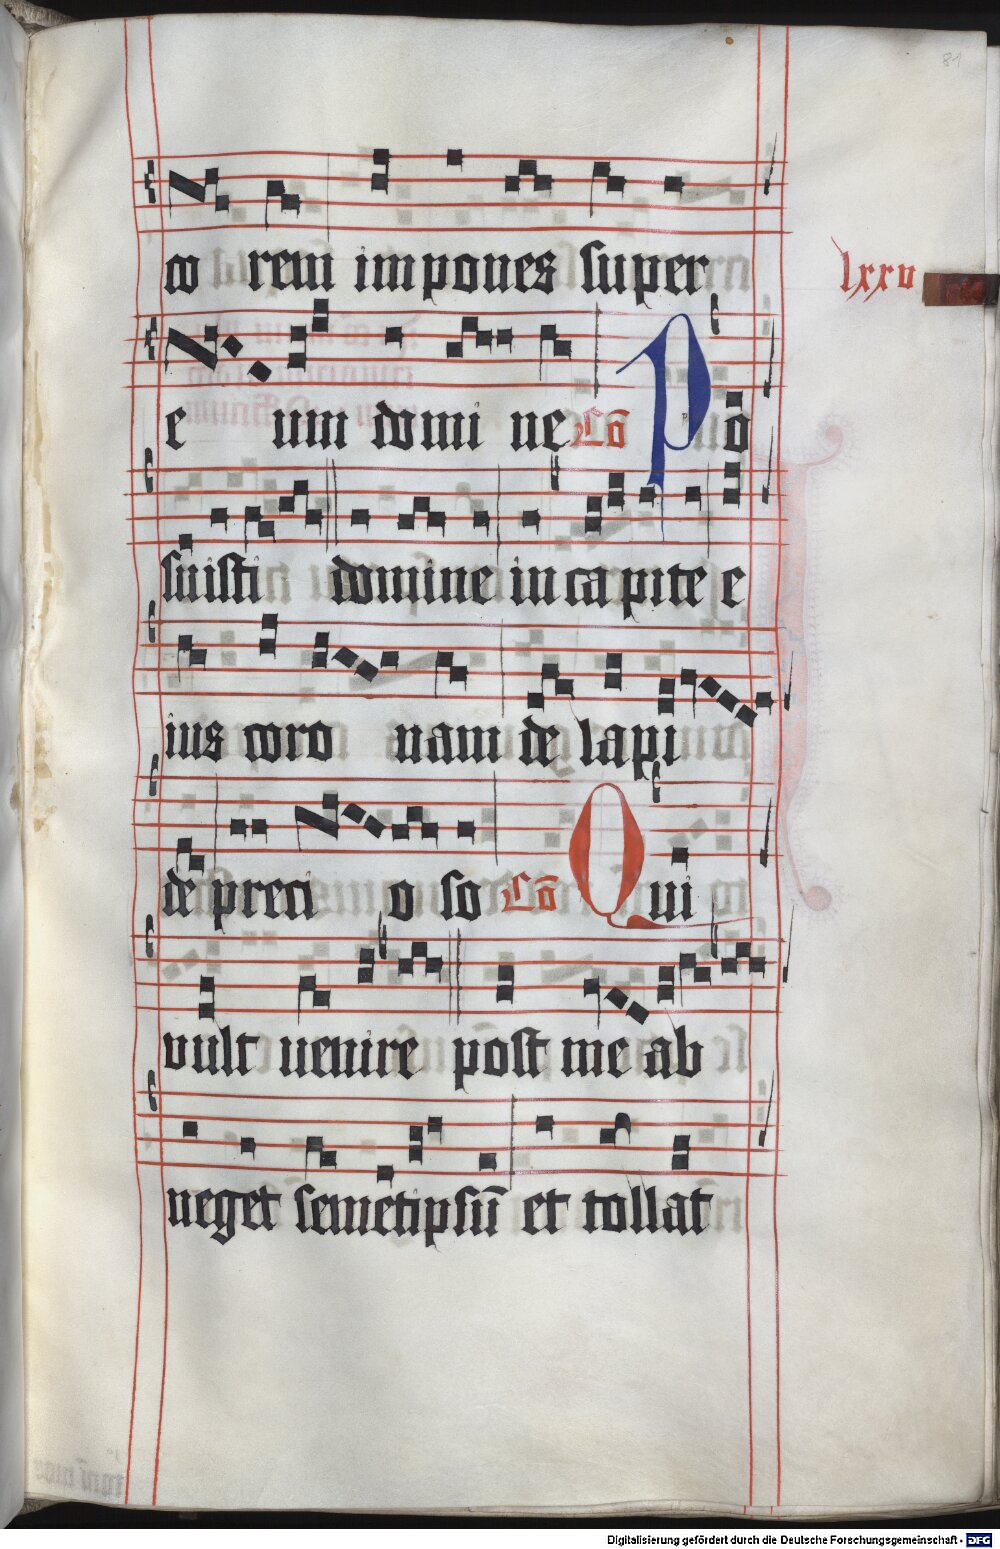 81
co rem impones super
lxxv
e um domi ne Cō Po
suisti domine in capite e
ius coro nam de lapi
de preci o so Cō Qui
vult uenire post me ab
neget semetipsū et tollat
Digitalisierung gefördert durch die Deutsche Forschungsgemeinschaft - DFG